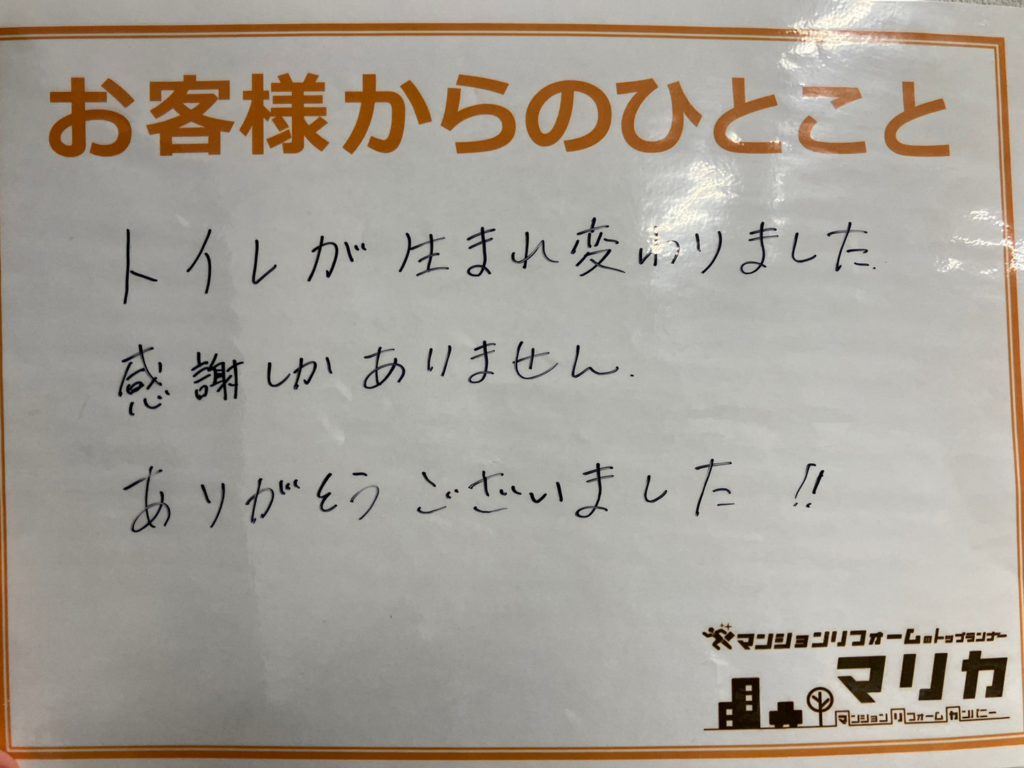 お客様からのひとこと
トイレが生まれ変わりました.
感謝しかありません.
ありがとうございました!!
マンションリフォームのトップランナー
マリカ
マンションリフォームカンパニー